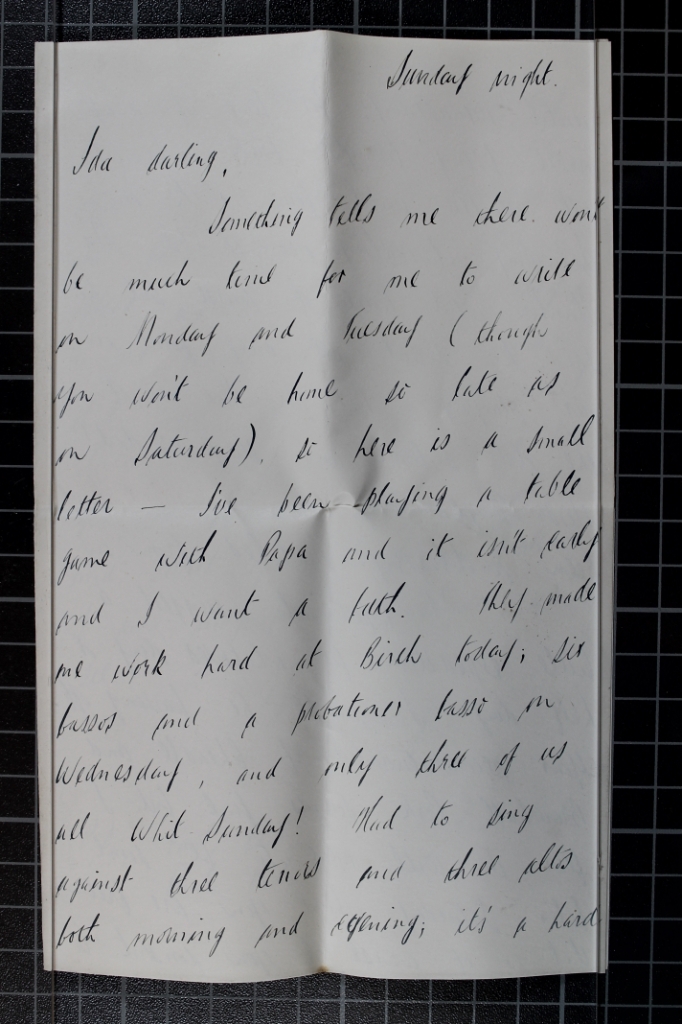 Sunday night.
Ida darling,
Something tells me there won't
be much time for me to write
on Monday and Tuesday (though
you won't be home so late as
on Saturday), so here is a small
letter — I've been playing a table
game with Papa and it isn't early
and I want a bath. They made
me work hard at Birch today; six
bassos and a probationer basso on
Wednesday, and only three of us
all Whit-Sunday! Had to sing
against three tenors and three altos
both morning and evening; it's a hard